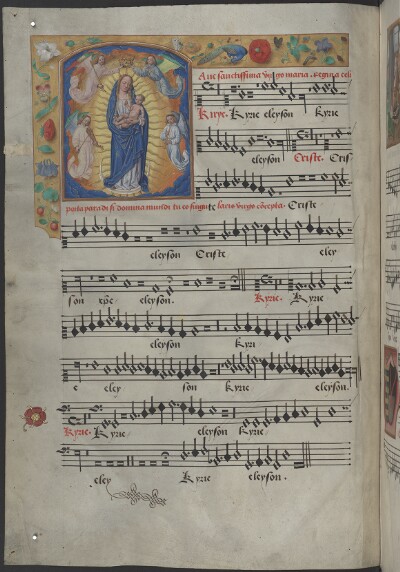 Aue sanctissima virgo maria. Regina celi
Kyrie. Kyrie eleyson Kyrie
eleyson Criste. Cris
porta paradisi domina mundi tu es singularis virgo
eleyson Criste eley
son eleyson. Kyrie. Kyrie
eleyson Kyri
e eley son kyrie eleyson.
Kyrie. Kyrie eleyson Kyrie
eley Kyrie eleyson.